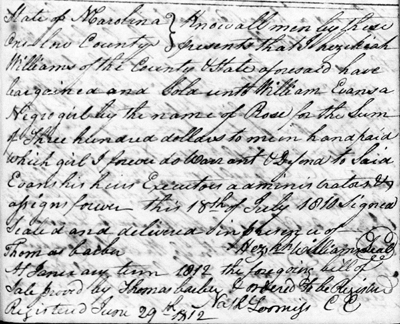 State of N Carolina } Know all men by these
County } presents that I Hezekiah
Williams of the County & State aforesaid have
bargained and Sold unto William Evans a
Negro girl by the name of Rose for the Sum
of Three hundred dollars to me in hand paid
which girl I forever do Warrant & defend to Said
Evans his heirs Executors administrators &
assigns forever this 18th of July 1810 Signed
Sealed and delivered in presence of
Thomas Hezekiah Williams Seal
At January term 1812 the foregoing bill of
Sale proved by Thomas & ordered to be Register
Registered June 29th 1812 Loomiss C C